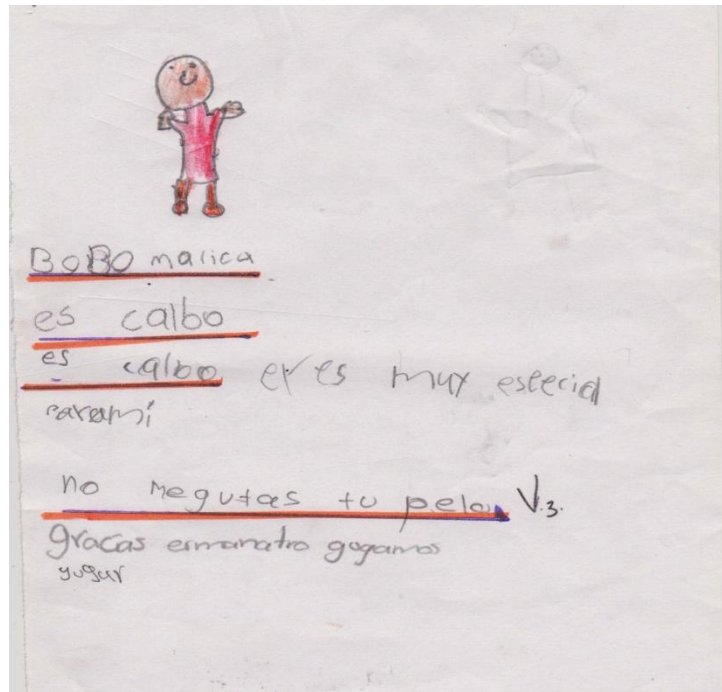 BOBO malica
es calbo
es calbo eres muy especial
parami
no megutas tu pelo V.3.
gracas ermanatro gugamos
yugur